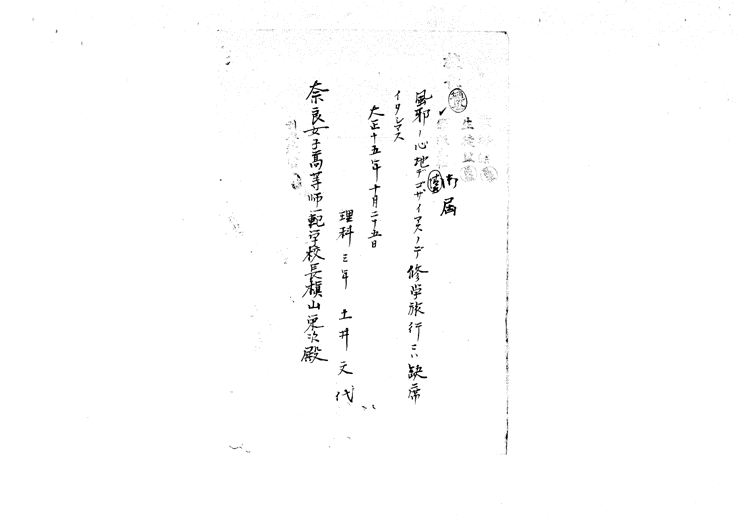 御届
風邪ノ心地デゴザイマスノデ修学旅行ニハ缺席
イタシマス
大正十五年十月二十五日
理科三年 土井文代
奈良女子高等師範学校長槇山栄次殿